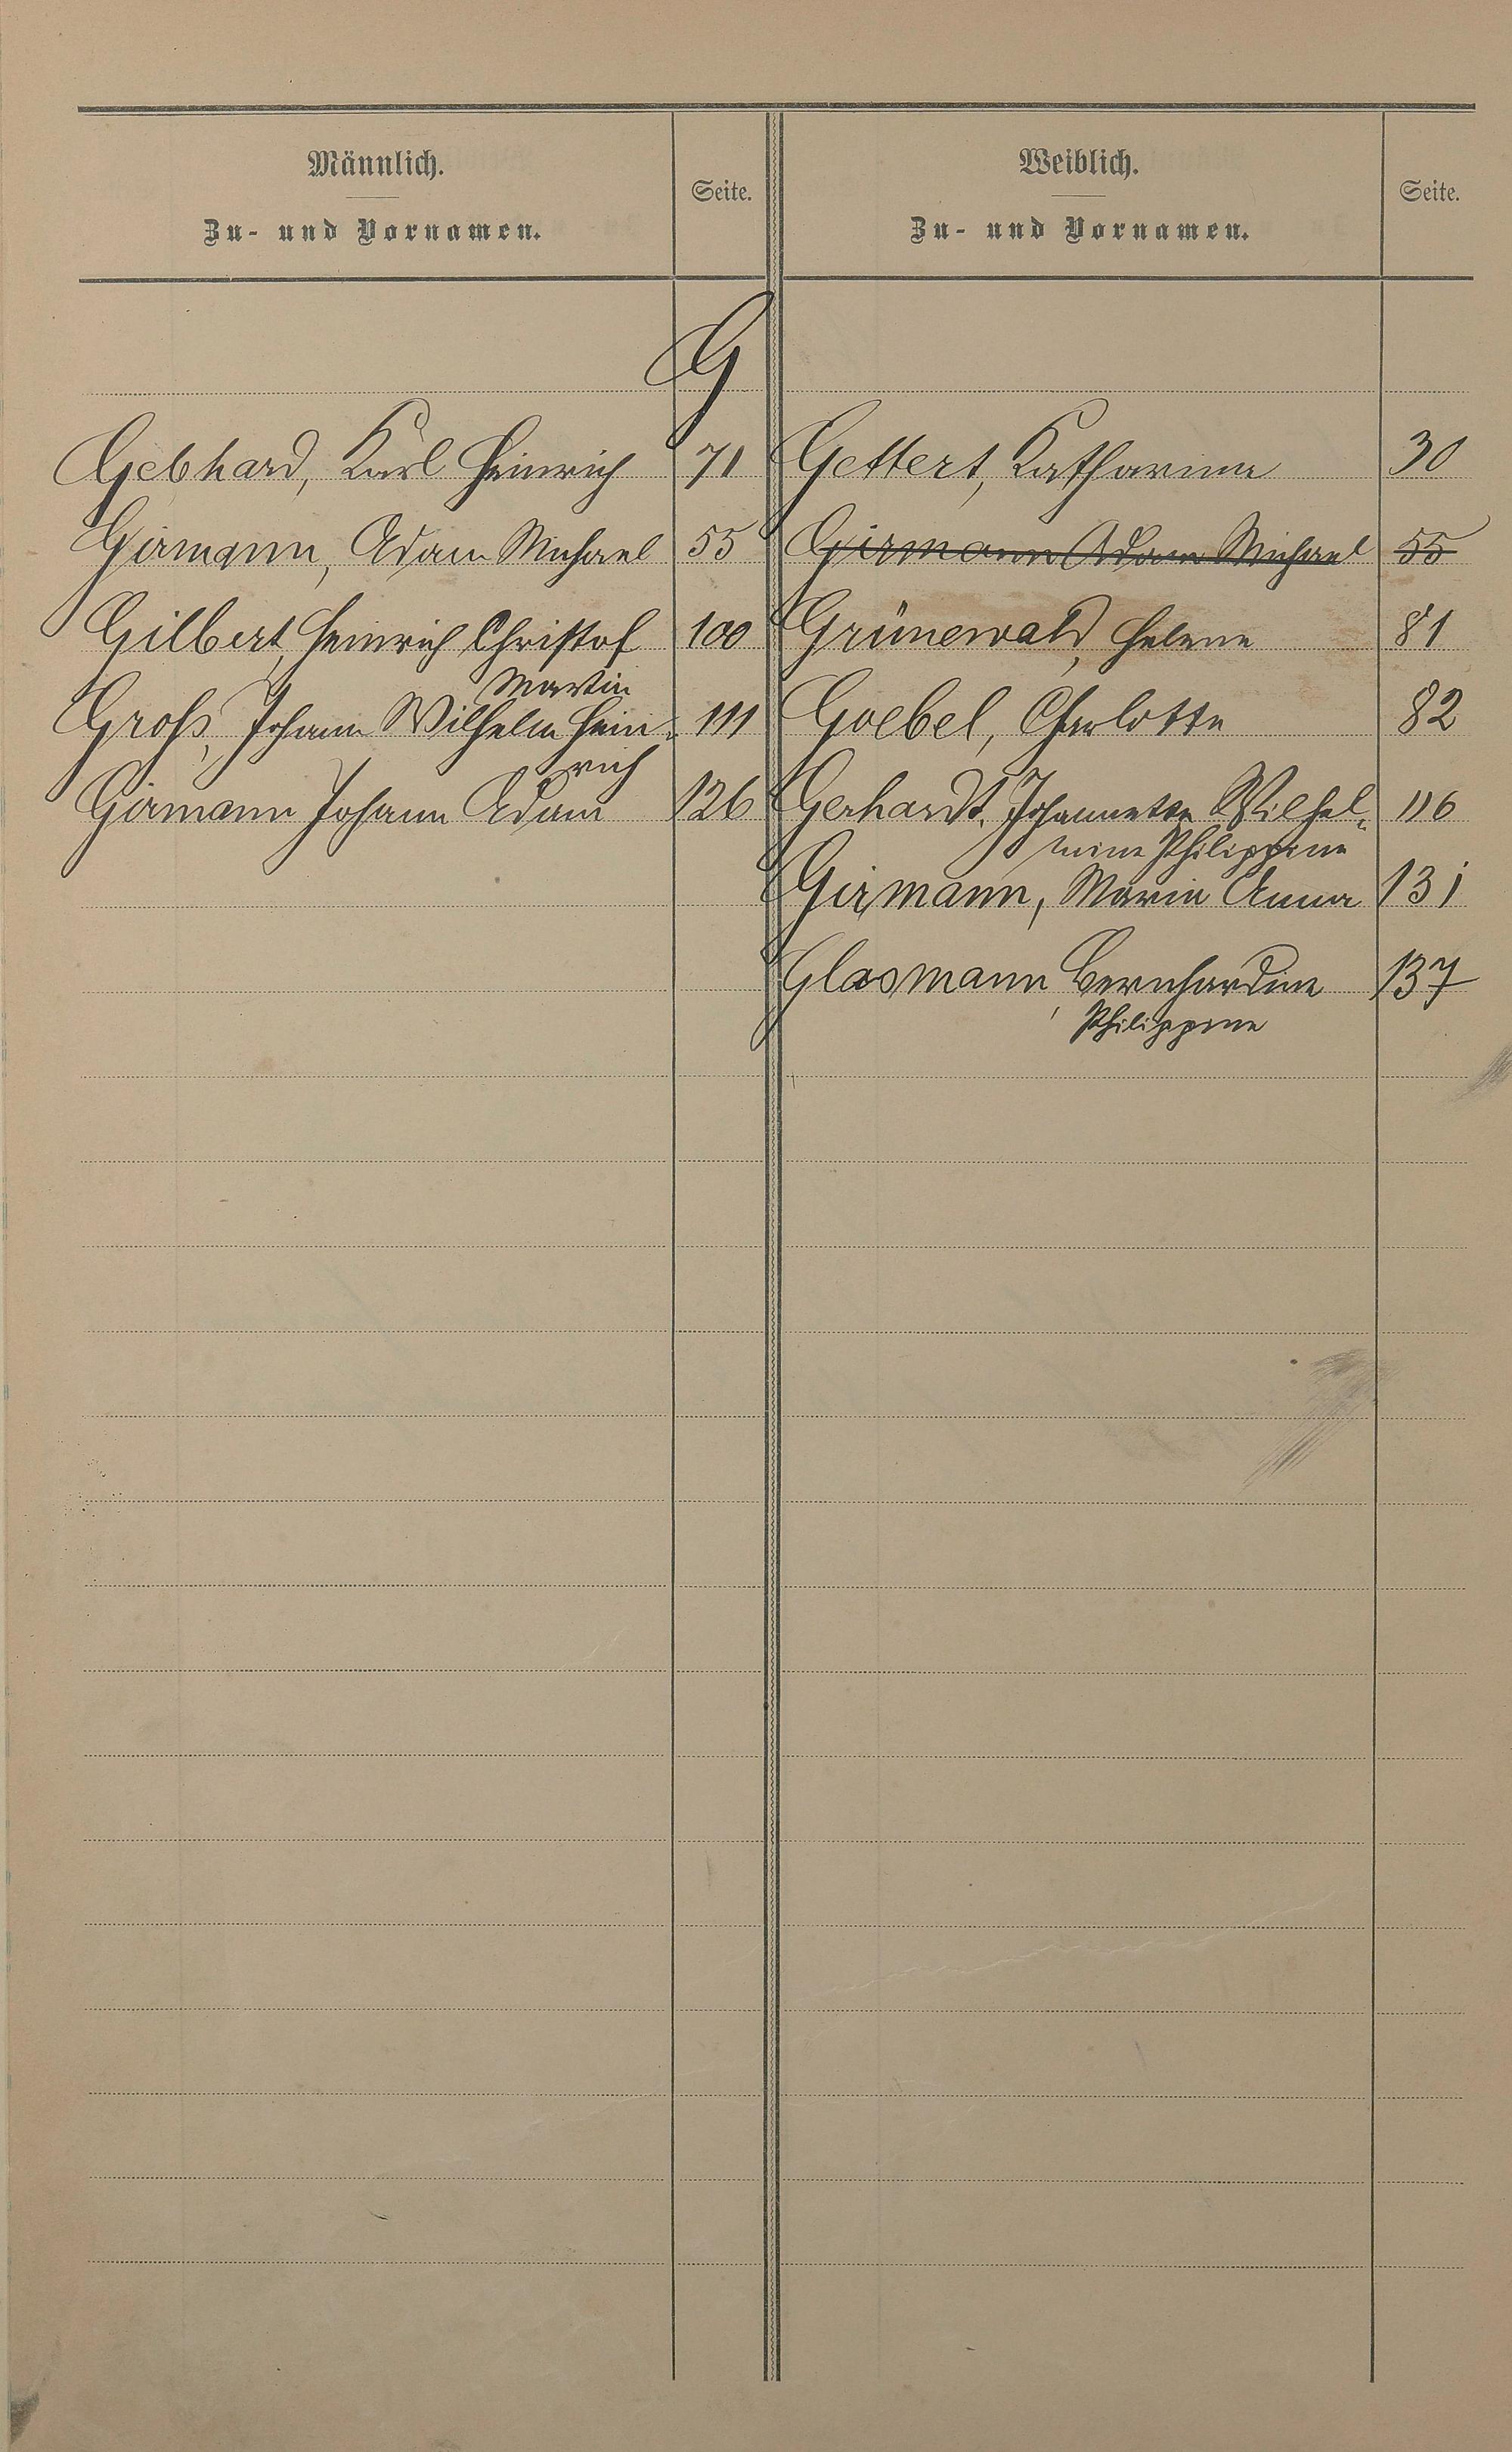 Männlich.
Zu- und Vornamen.
Seite.
Weiblich.
Zu- und Vornamen.
Seite.
G
Gebhard, Karl Heinrich 71
Girmann, Adam Michael 55
Gilbert, Heinrich Christof 100
Martin
Groß, Johann Wilhelm Hein- 111
rich
Girmann Johann Adam 126
Gettert, Katharina 30
Girmann Adam Michael 55
Grünewald, Helene 81
Goebel, Charlotte 82
Gerhardt, Johannette Wilhel- 116
mine Philippine
Girmann, Maria Anna 131
Glasmann, Bernhardine 137
Philippine